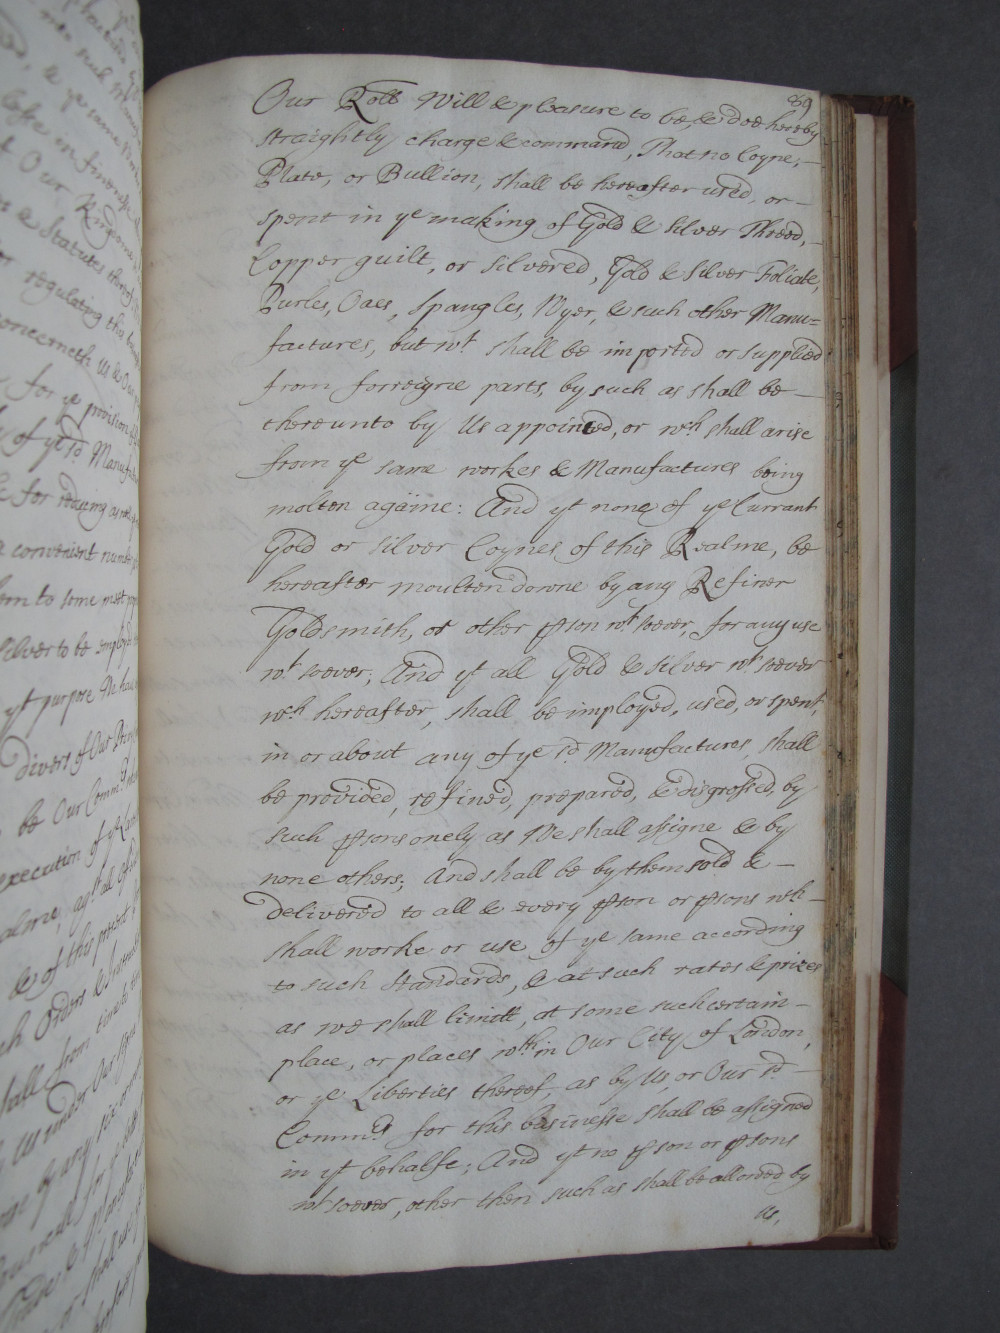 89
Our Roll Will & pleasure to be, & doe hereby
straightly charge & command, That no Coyne,
Plate, or Bullion, shall be hereafter used, or
spent in ye making of Gold & Silver Threed,
Copper guilt, or silvered, Gold & Silver Foliate,
Purles, Oaes, Spangles, Wyer, & such other Manu=
factures, but wt. shall be imported or supplied
from forreigne parts, by such as shall be
thereunto by Us appointed, or wch shall arise
from ye same workes & Manufactures being
molten againe: And yt none of ye Currant
Gold or Silver Coynes of this Realme, be
hereafter moulten downe by any Refiner
Goldsmith, or other pson wt. soever, for any use
wt. soever; And yt all Gold & Silver wt. soever
wch hereafter, shall be imployed, used, or spent,
in or about any of ye sd. Manufactures, shall
be provided, refined, prepared, & disgrossed, by
such psons onely as We shall assigne & by
none others; And shall be by them sold &
delivered to all & every pson or psons wch
shall worke or use of ye same according
to such Standards, & at such rates & prizes
as we shall limitt, at some such certain
place, or places wth.in Our City of London,
or ye Liberties thereof, as by Us, or Our sd.
Comm.rs for this businesse shall be assigned
in yt behalfe; And yt no pson or psons
wt. soever, other then such as shall be allowed by
us,
divers of Our
be Our Comm.rs
execution of ye
yt purpose We have
Silver to be employed
a convenient number
for ye provision
concerneth Us & Our
for regulating this
& Statutes thereof
Our Kingdome
of ye sd. Manufact
& of this present